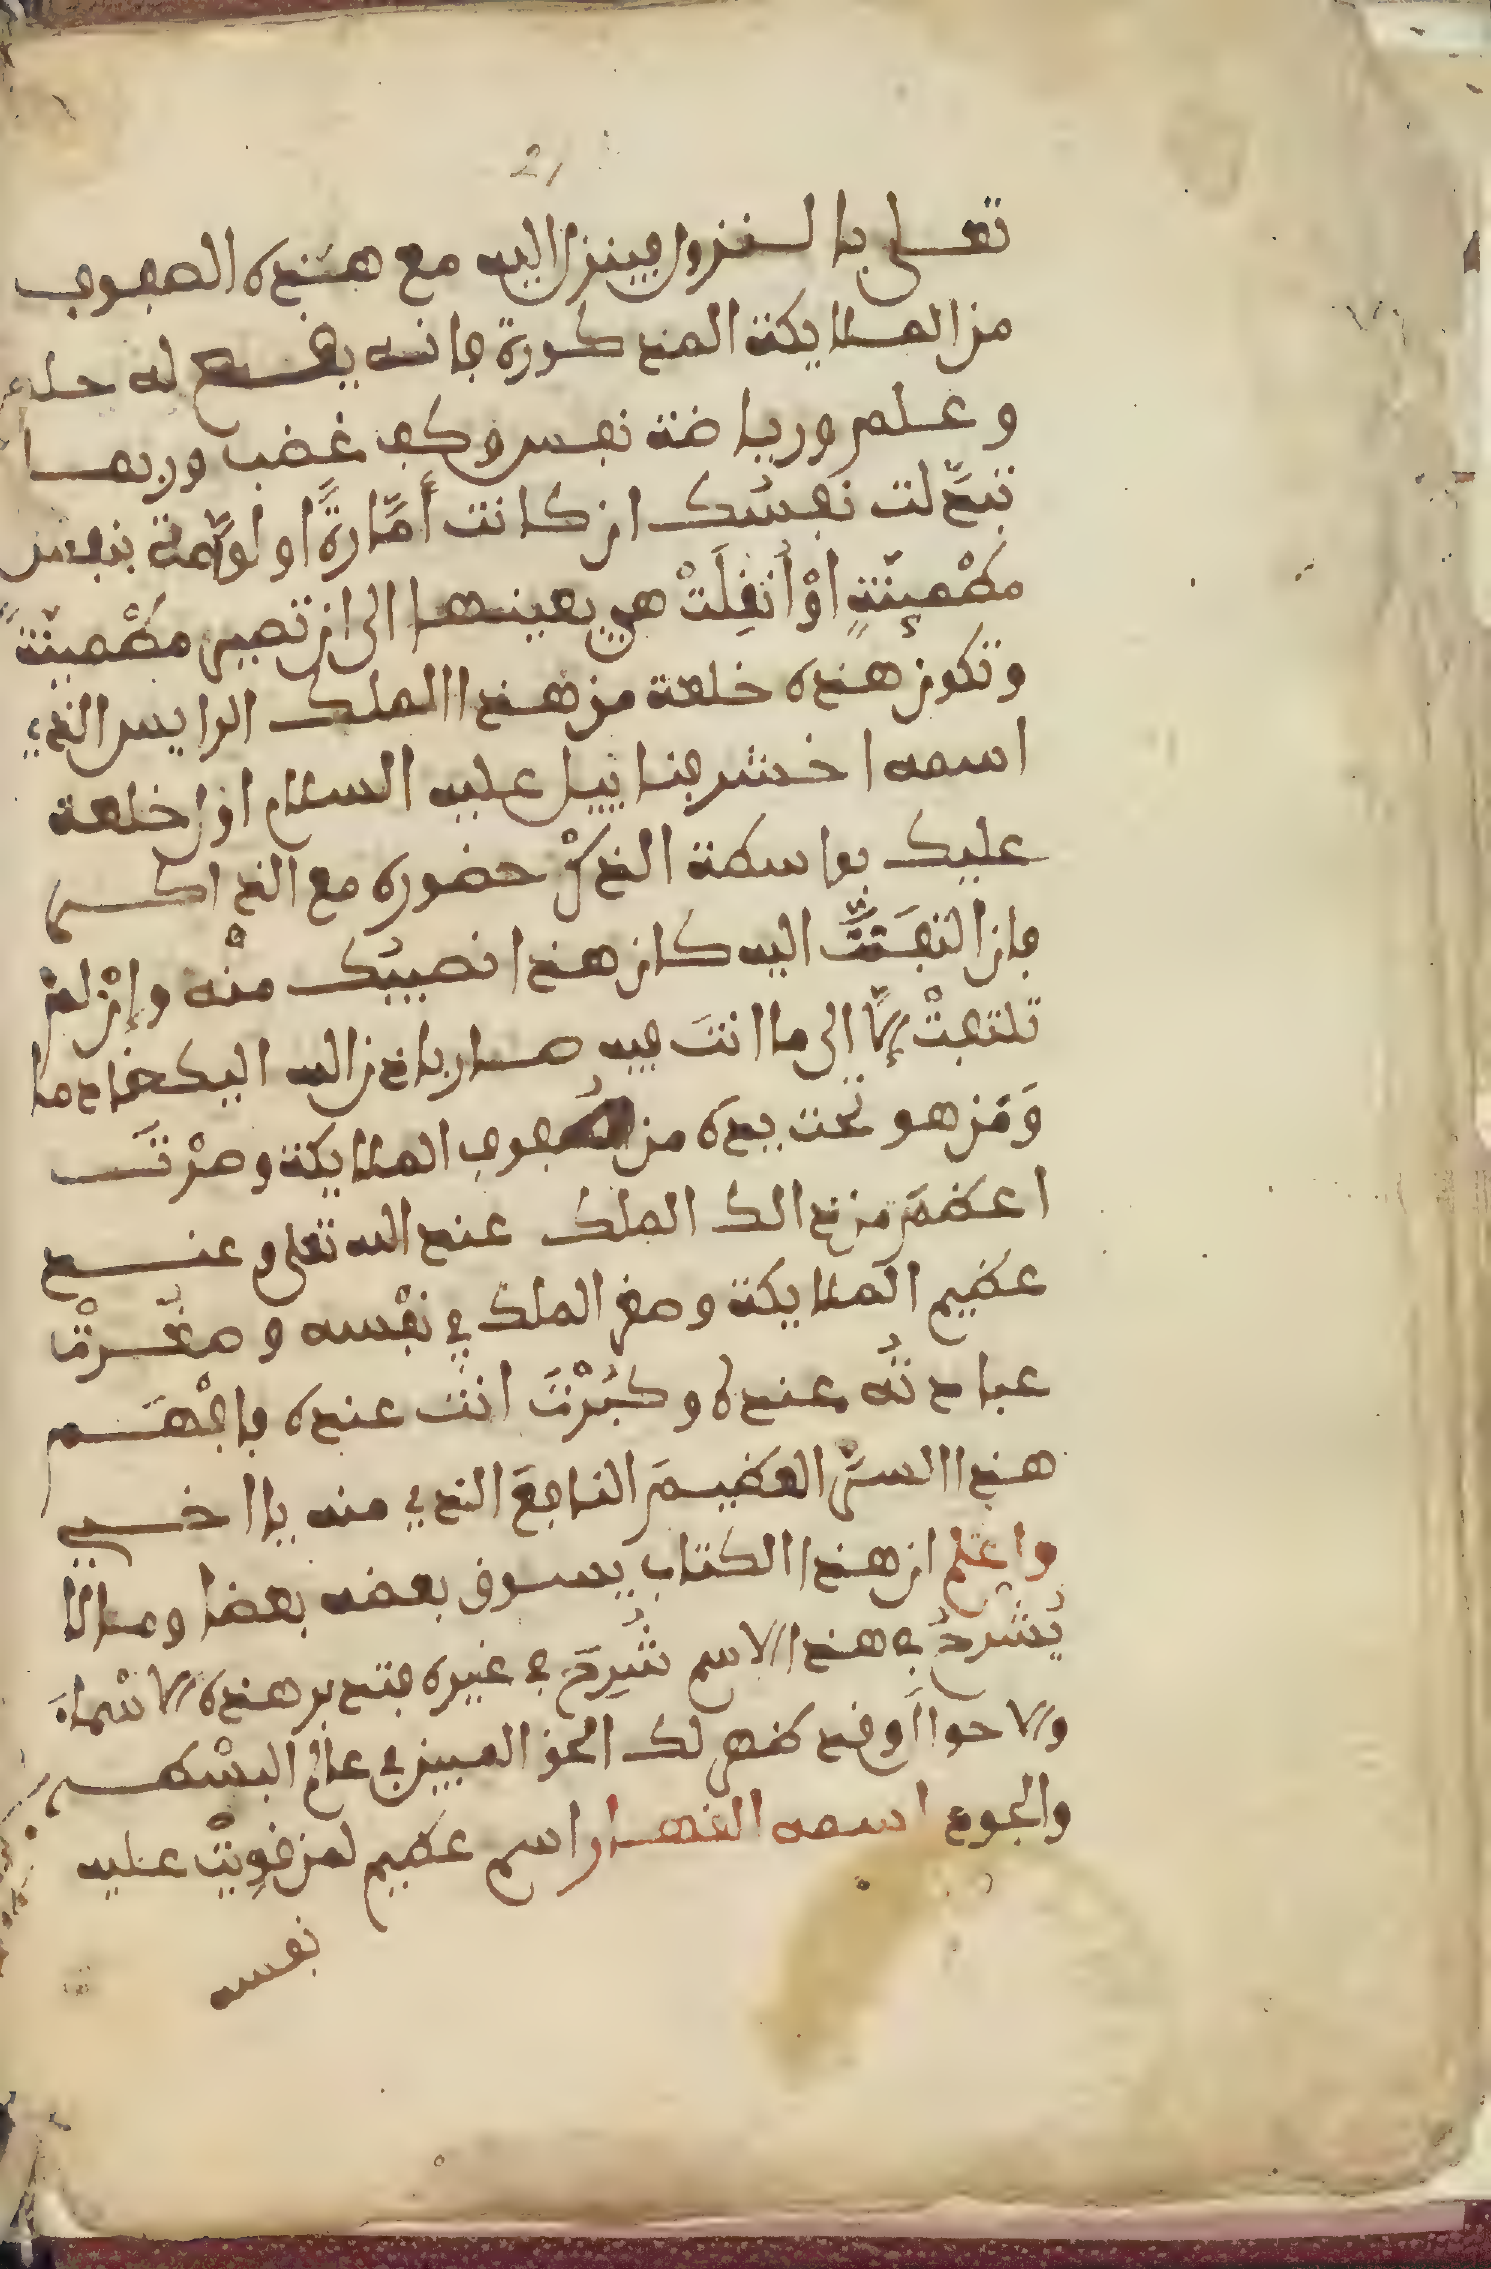 21
تعلى بالنزول فينزل اليه مع هذه الصفوف
من الملايكة المذكورة فانه يخلع له حلة
وعلم ورياضة نفس وكف غضب وربما
تبدَّلت نفسك ان كانت أمَّارةً او لوّامة بنفس
مطْمينّةٍ اوْ أُنقِلَتْ هي بعينها الى ان تصير مطْمينّة
وتكون هذه خلعة من هذا الملك الرايس الذي
اسمه عليه السلام اول خلعة
عليك بواسطة الذكْر حضوره مع الذاكر
فان التفَتَّ اليه كان هذا نصيبك منْه وإنْ لمْ
تلتفتْ إلّا الى ما انتَ فيه صار باذن الله اليك خادما
وَمَن هو تحت يده من صفوف الملايكة وصرْتَ
اعظمَ من ذالك الملك عند الله تعلى وعند
عظيم الملايكة وصغر الملك في نفْسه وصغّرتْ
عبادتُه عنده وكبُرْتَ انتَ عنده فافْهَم
هذا السرَّ العظيمَ النافعَ الذي منه يا اخي
واعلم ان هذا الكتاب يسوق بعضه بعضا ومالا
يُشْرحُ في هذا الاسم شُرِحَ في غيره فتدبر هذه الاسْماءَ
والاحوال وقد ظهر لك الحق المبين في عالم البسْط
والجوع اسمه القهار اسم عظيم لمن قوِيَتْ عليه
نفسه